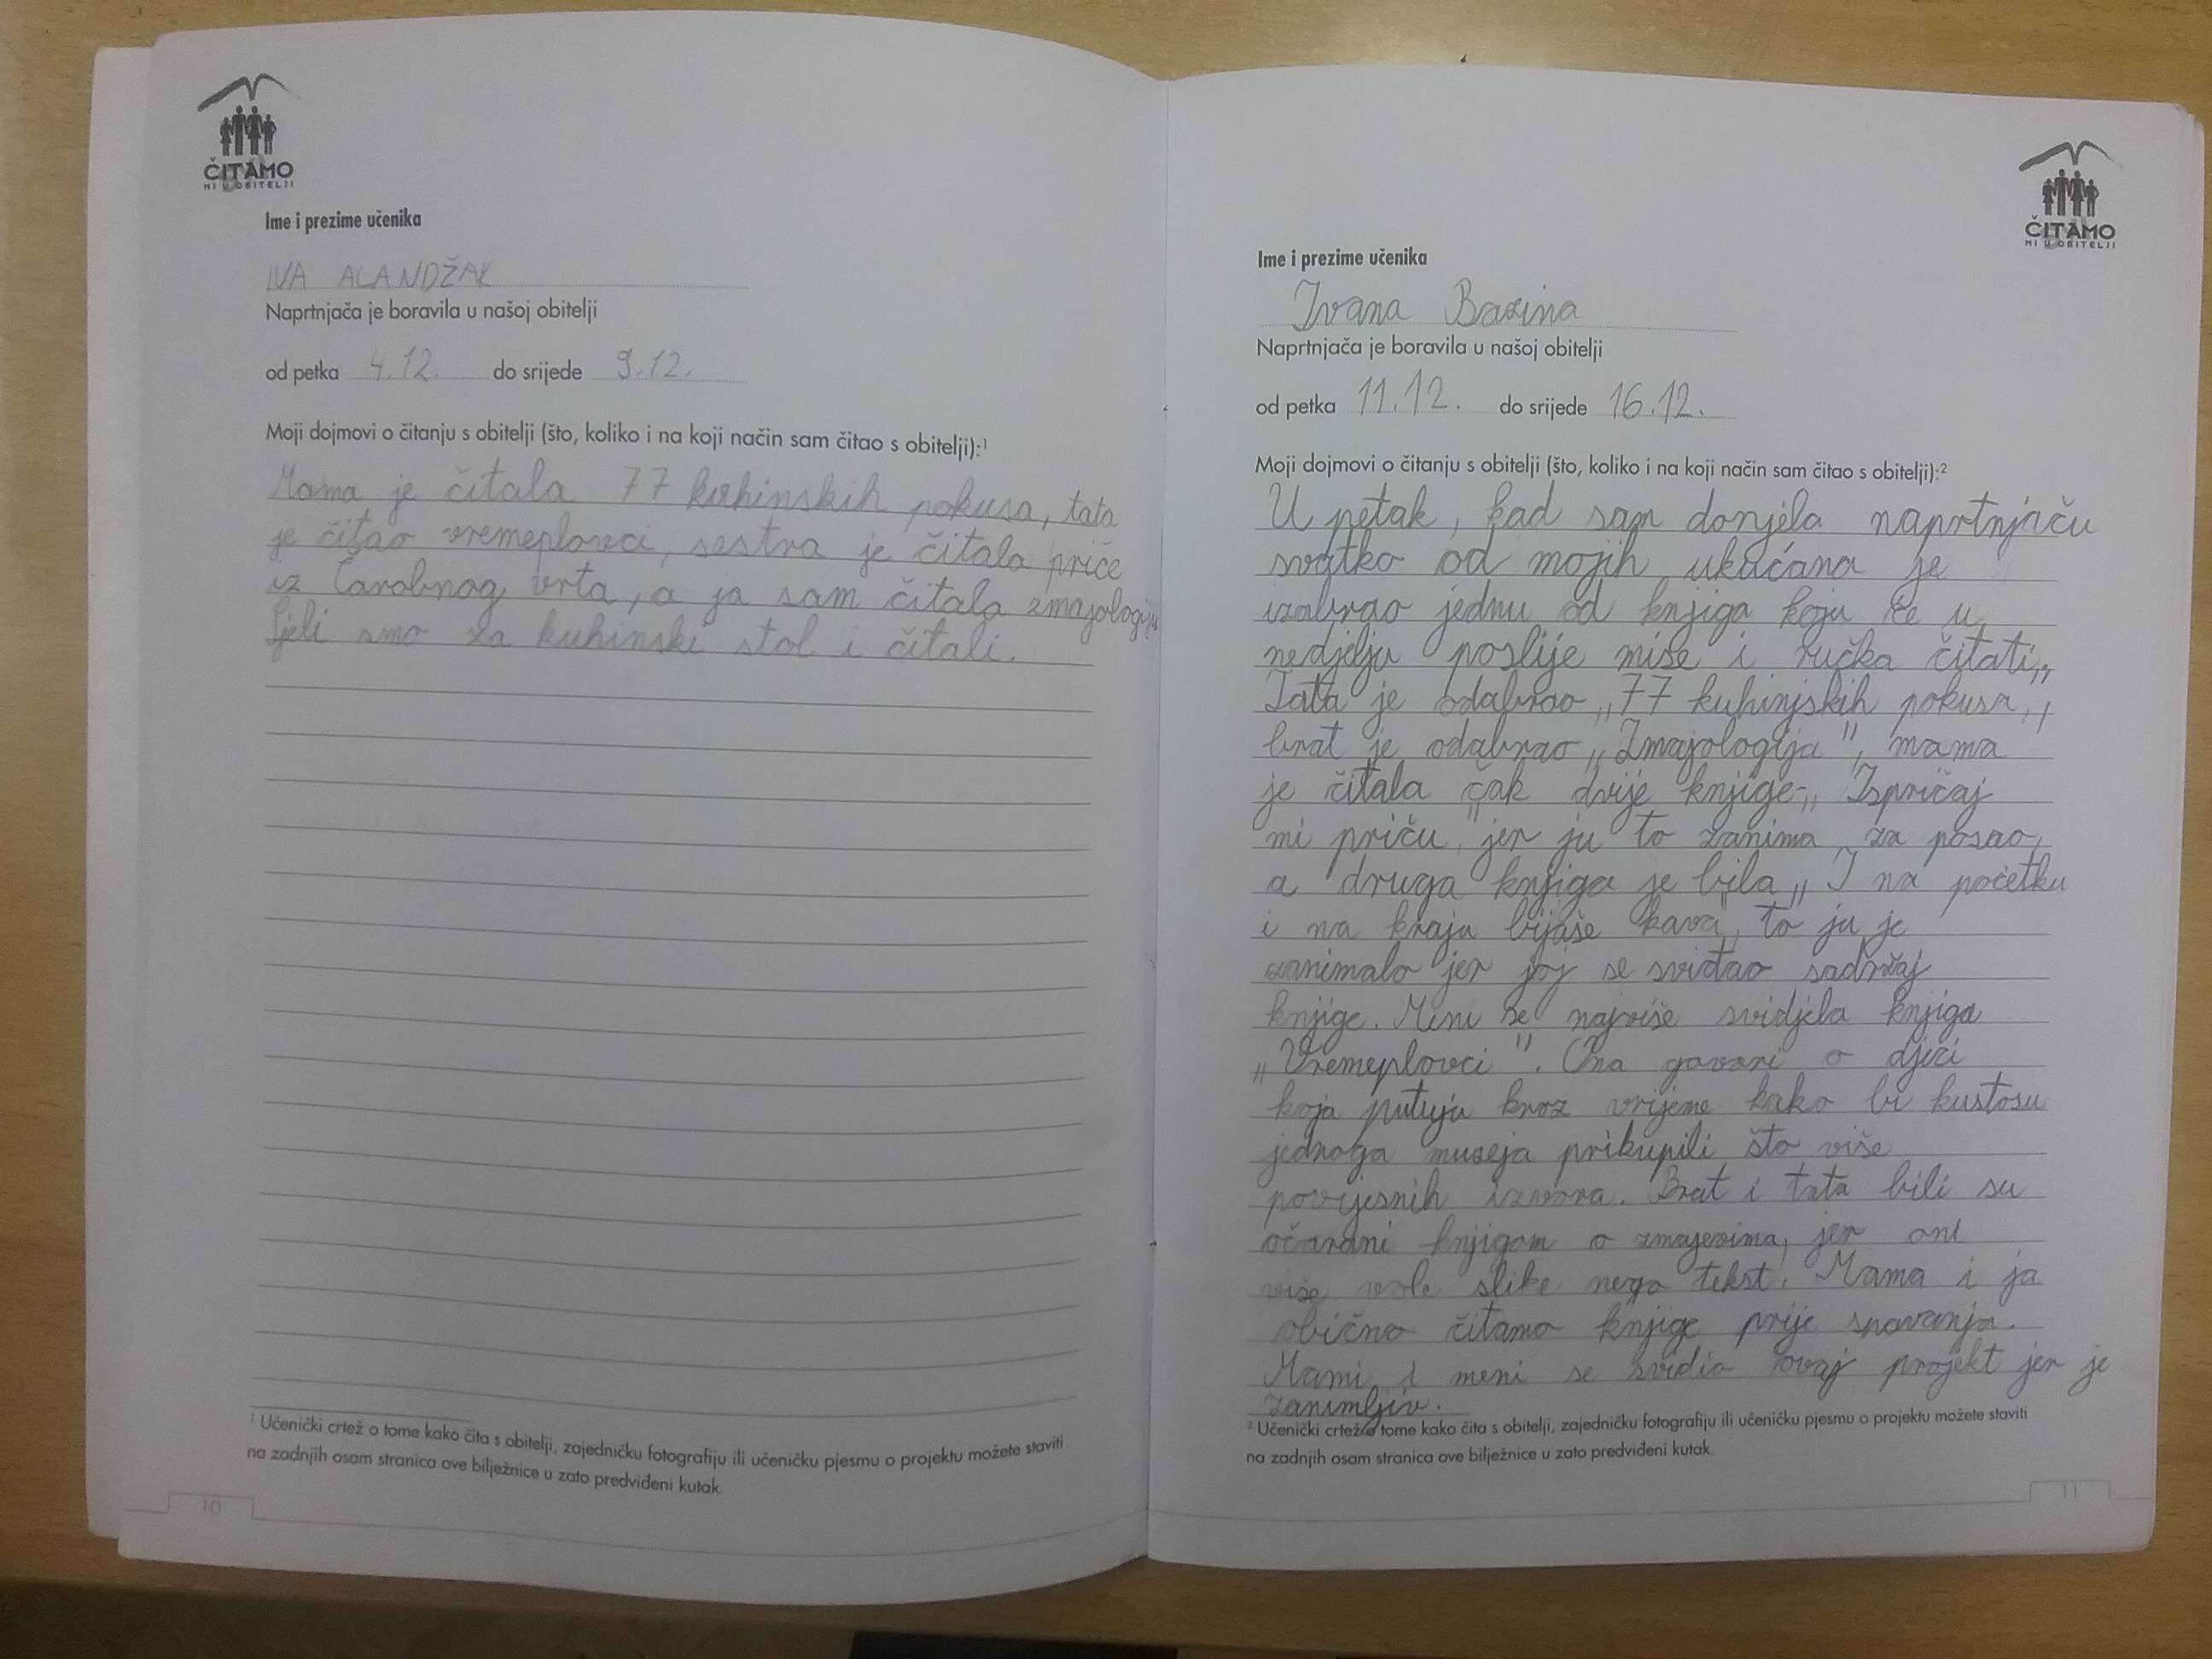 ČITAMO
MI U OBITELJI
Ime i prezime učenika
IVA ALANDŽAK
Naprtnjača je boravila u našoj obitelji
od petka 4.12. do srijede 9.12.
Moji dojmovi o čitanju s obitelji (što, koliko i na koji način sam čitao s obitelji):¹
Mama je čitala 77 kuhinskih pokusa, tata
je čitao vremeplovci, sestra je čitala priče
iz Čarobnog vrta, a ja sam čitala zmajologiju
Sjeli smo za kuhinski stol i čitali.
¹ Učenički crtež o tome kako čita s obitelji, zajedničku fotografiju ili učeničku pjesmu o projektu možete staviti
na zadnjih osam stranica ove bilježnice u zato predviđeni kutak.
10
ČITAMO
MI U OBITELJI
Ime i prezime učenika
Ivana Bazina
Naprtnjača je boravila u našoj obitelji
od petka 11.12. do srijede 16.12.
Moji dojmovi o čitanju s obitelji (što, koliko i na koji način sam čitao s obitelji):²
U petak, kad sam donjela naprtnjaču
svatko od mojih ukućana je
izabrao jednu od knjiga koju će u
nedjelju poslije mise i ručka čitati„
Tata je odabrao „77 kuhinjskih pokusa",
brat je odabrao „Zmajologija", mama
je čitala čak dvije knjige-„ Ispričaj
mi priču" jer ju to zanima za posao,
a druga knjiga je bila „ I na početku
i na kraju bijaše kava", to ju je
zanimalo jer joj se sviđao sadržaj
knjige. Meni se najviše svidjela knjiga
„Vremeplovci". Ona govori o djeci
koja putuju kroz vrijeme kako bi kustosu
jednoga muzeja prikupili što više
povijesnih izvora. Brat i tata bili su
očarani knjigom o zmajevima, jer oni
više vole slike nego tekst. Mama i ja
obično čitamo knjige prije spavanja.
Mami i meni se svidio ovaj projekt jer je
zanimljiv.
² Učenički crtež o tome kako čita s obitelji, zajedničku fotografiju ili učeničku pjesmu o projektu možete staviti
na zadnjih osam stranica ove bilježnice u zato predviđeni kutak.
11